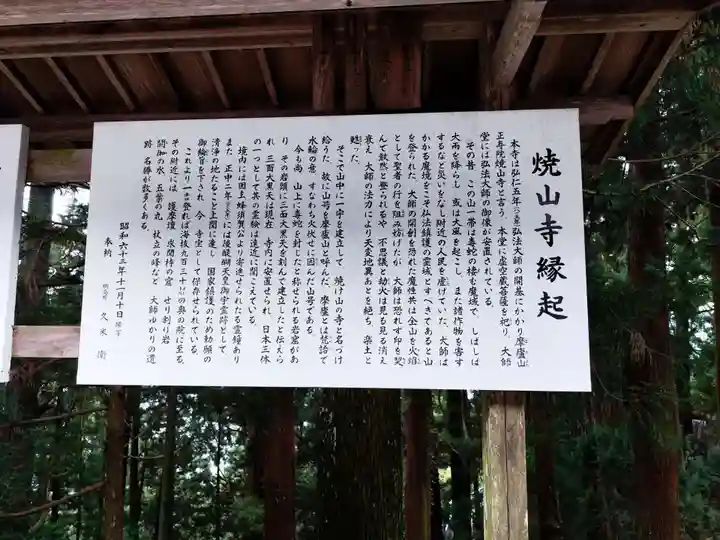 焼山寺縁起
本寺は弘仁五年弘法大師の開基にかかり摩盧山
正寿院焼山寺と言う 本堂に虚空蔵菩薩を祀り 大師
堂には弘法大師の御像が安置されている。
その昔 この山一帯は毒蛇の棲む魔域で、しばしば
大雨を降らし 或は大風を起こし、また諸作物を害す
るなど災いをなし附近の人民を虐げていた、大師は
かかる魔境をこそ仏法鎮護の霊域とすべきであると山
を登られた、大師の開創を恐れた魔性共は全山を火焰
として聖者の行を阻み妨げたが 大師は恐れず印を契
んで敢然と登られるや 不思議と劫火は見る見る消え
衰え 大師の法力により天変地異あとを絶ち、楽土と
甦った。
そこで山中に一宇を建立して 焼け山の寺と名づけ
給うた、故に山号を摩盧山と呼んだ、摩盧とは梵語で
水輪の意 すなわち火伏せに因んだ山号である、
今も尚 山上に毒蛇を封じたと称せられる岩窟があ
り その岩頭に三面大黒天を刻んで建立したと伝えら
れ 三面大黒天は現在 寺内に安置せられ、日本三体
の一つとして其の霊験は遠近に聞こえている。
境内には国主蜂須賀公より寄進せられた霊鐘あり
また 正中二年には後醍醐天皇御宇霊跡として
清浄の地たること上聞に達し 国家鎮護のため勅願の
御綸旨を下され 今 寺宝として保存せられている、
これより一粁登れば海抜九百三十の奥の院に至る、
その附近には 護摩壇 求聞持の窟 せり割り岩
閼伽の水 五葉の丸 杖立の峰など 大師ゆかりの遺
跡 名勝が数多くある。
昭和六十三年十一月十日
奉納 久米 衛